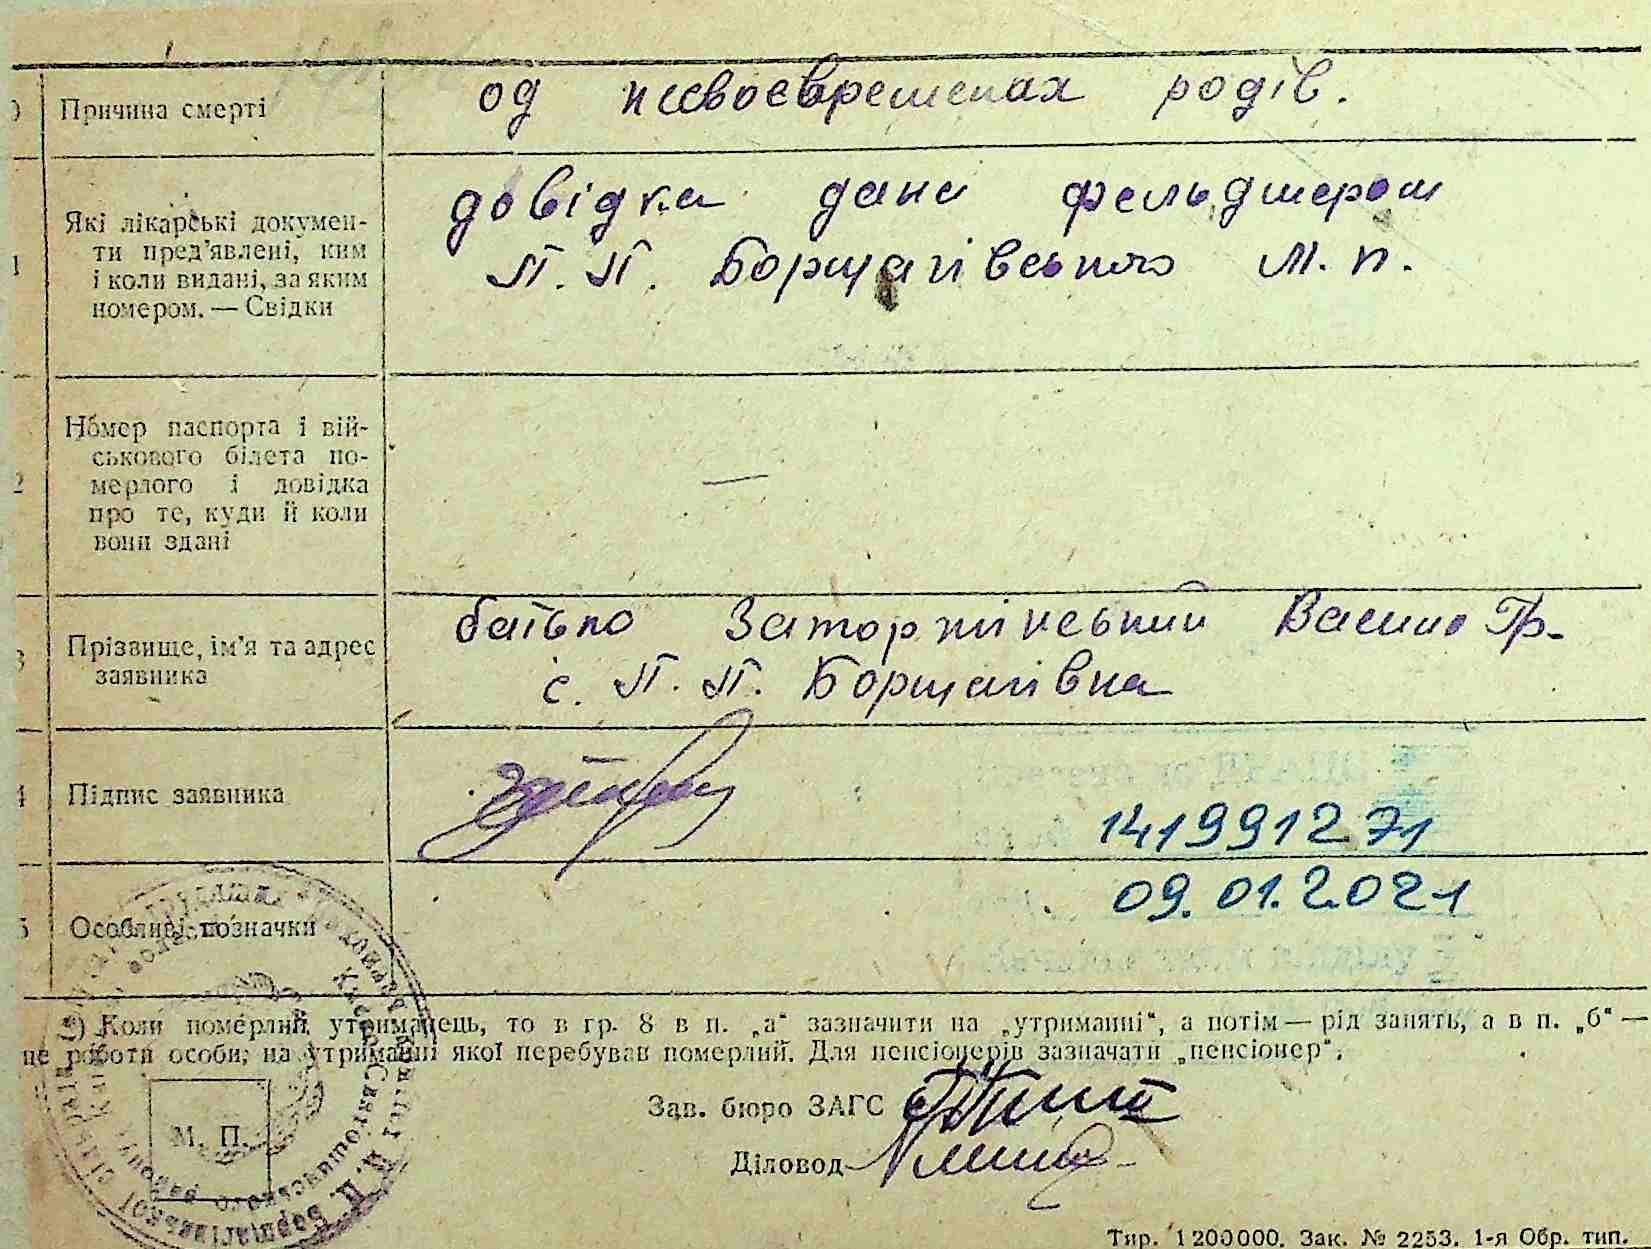 Причина смерті
од несвоевременах родів.
1
Які лікарські докумен-
ти пред'явлені, ким
і коли видані, за яким
номером. — Свідки
довідка дана фельдшером
П. П. Борщагівського м. п.
2
Номер паспорта і вій-
ськового білета по-
мерлого і довідка
про те, куди й коли
вони здані
—
3
Прізвище, ім'я та адрес
заявника
батько Василь Гр.
с. П. П. Борщагівка
4
Підпис заявника
14199127 71
09.01.2021
5
Особливі позначки
¹) Коли померлий утриманець, то в гр. 8 в п. „а" зазначити на „утриманні", а потім — рід занять, а в п. „б" —
це роботи особи, на утриманні якої перебував померлий. Для пенсіонерів зазначати „пенсіонер".
Зав. бюро ЗАГС
Діловод
М. П.
Київ. Святошинського району
П. П. Борщагівської
Тир. 1200000. Зак. № 2253. 1-я Обр. тип.